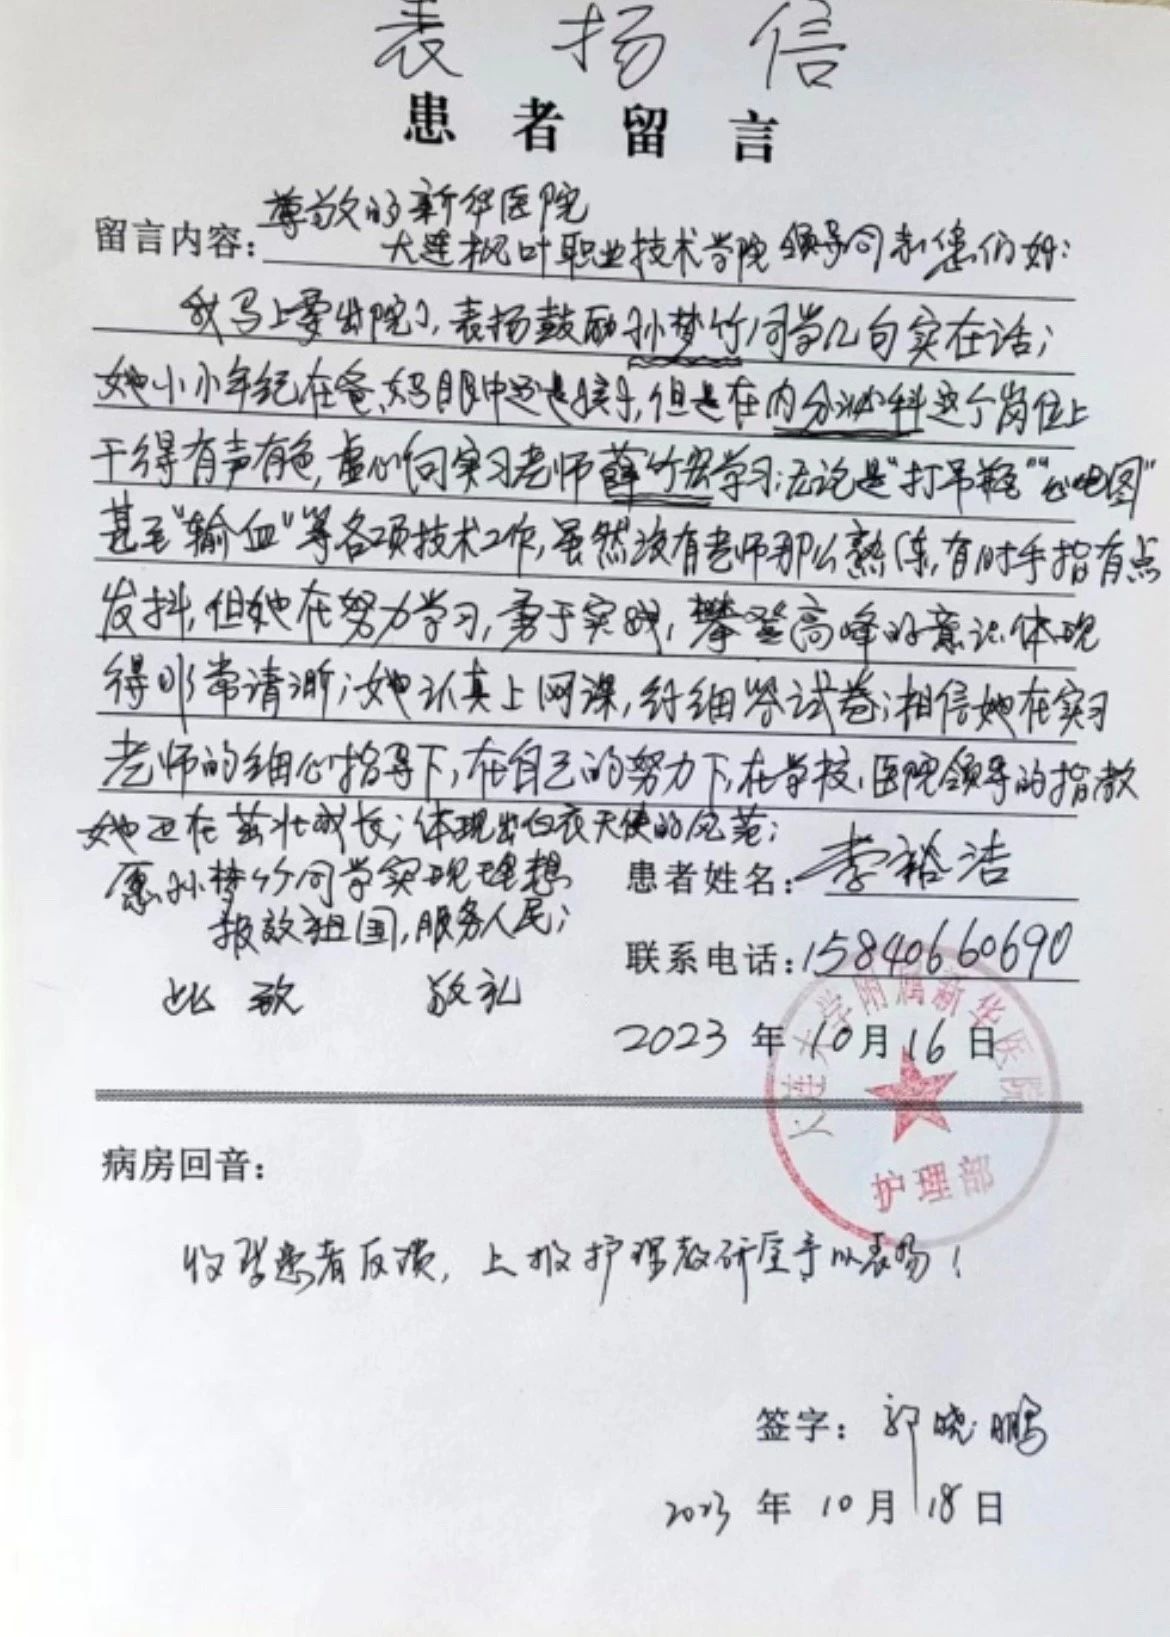 表扬信
患者留言
尊敬的新华医院
留言内容:大连枫叶职业技术学院领导同志您们好:
我马上要出院了,表扬鼓励孙梦竹同学几句实在话;
她小小年纪在爸、妈眼中还是孩子,但是在内分泌科这个岗位上
干得有声有色,虚心向实习老师薛竹宏学习;无论是"打吊瓶""心电图"
甚至"输血"等各项技术工作,虽然没有老师那么熟练,有时手指有点
发抖,但她在努力学习,勇于实践,攀登高峰的意识体现
得非常清淅;她认真上网课,仔细答试卷;相信她在实习
老师的细心指导下,在自己的努力下,在学校、医院领导的指教
她正在茁壮成长;体现出白衣天使的风范;
愿孙梦竹同学实现理想
报效祖国,服务人民;
此致 敬礼
患者姓名:李裕洁
联系电话:15840660690
2023年10月16日
大连大学附属新华医院
护理部
病房回音:
收到患者反馈,上报护理教研室予以表扬!
签字:郭晓鹏
2023年10月18日